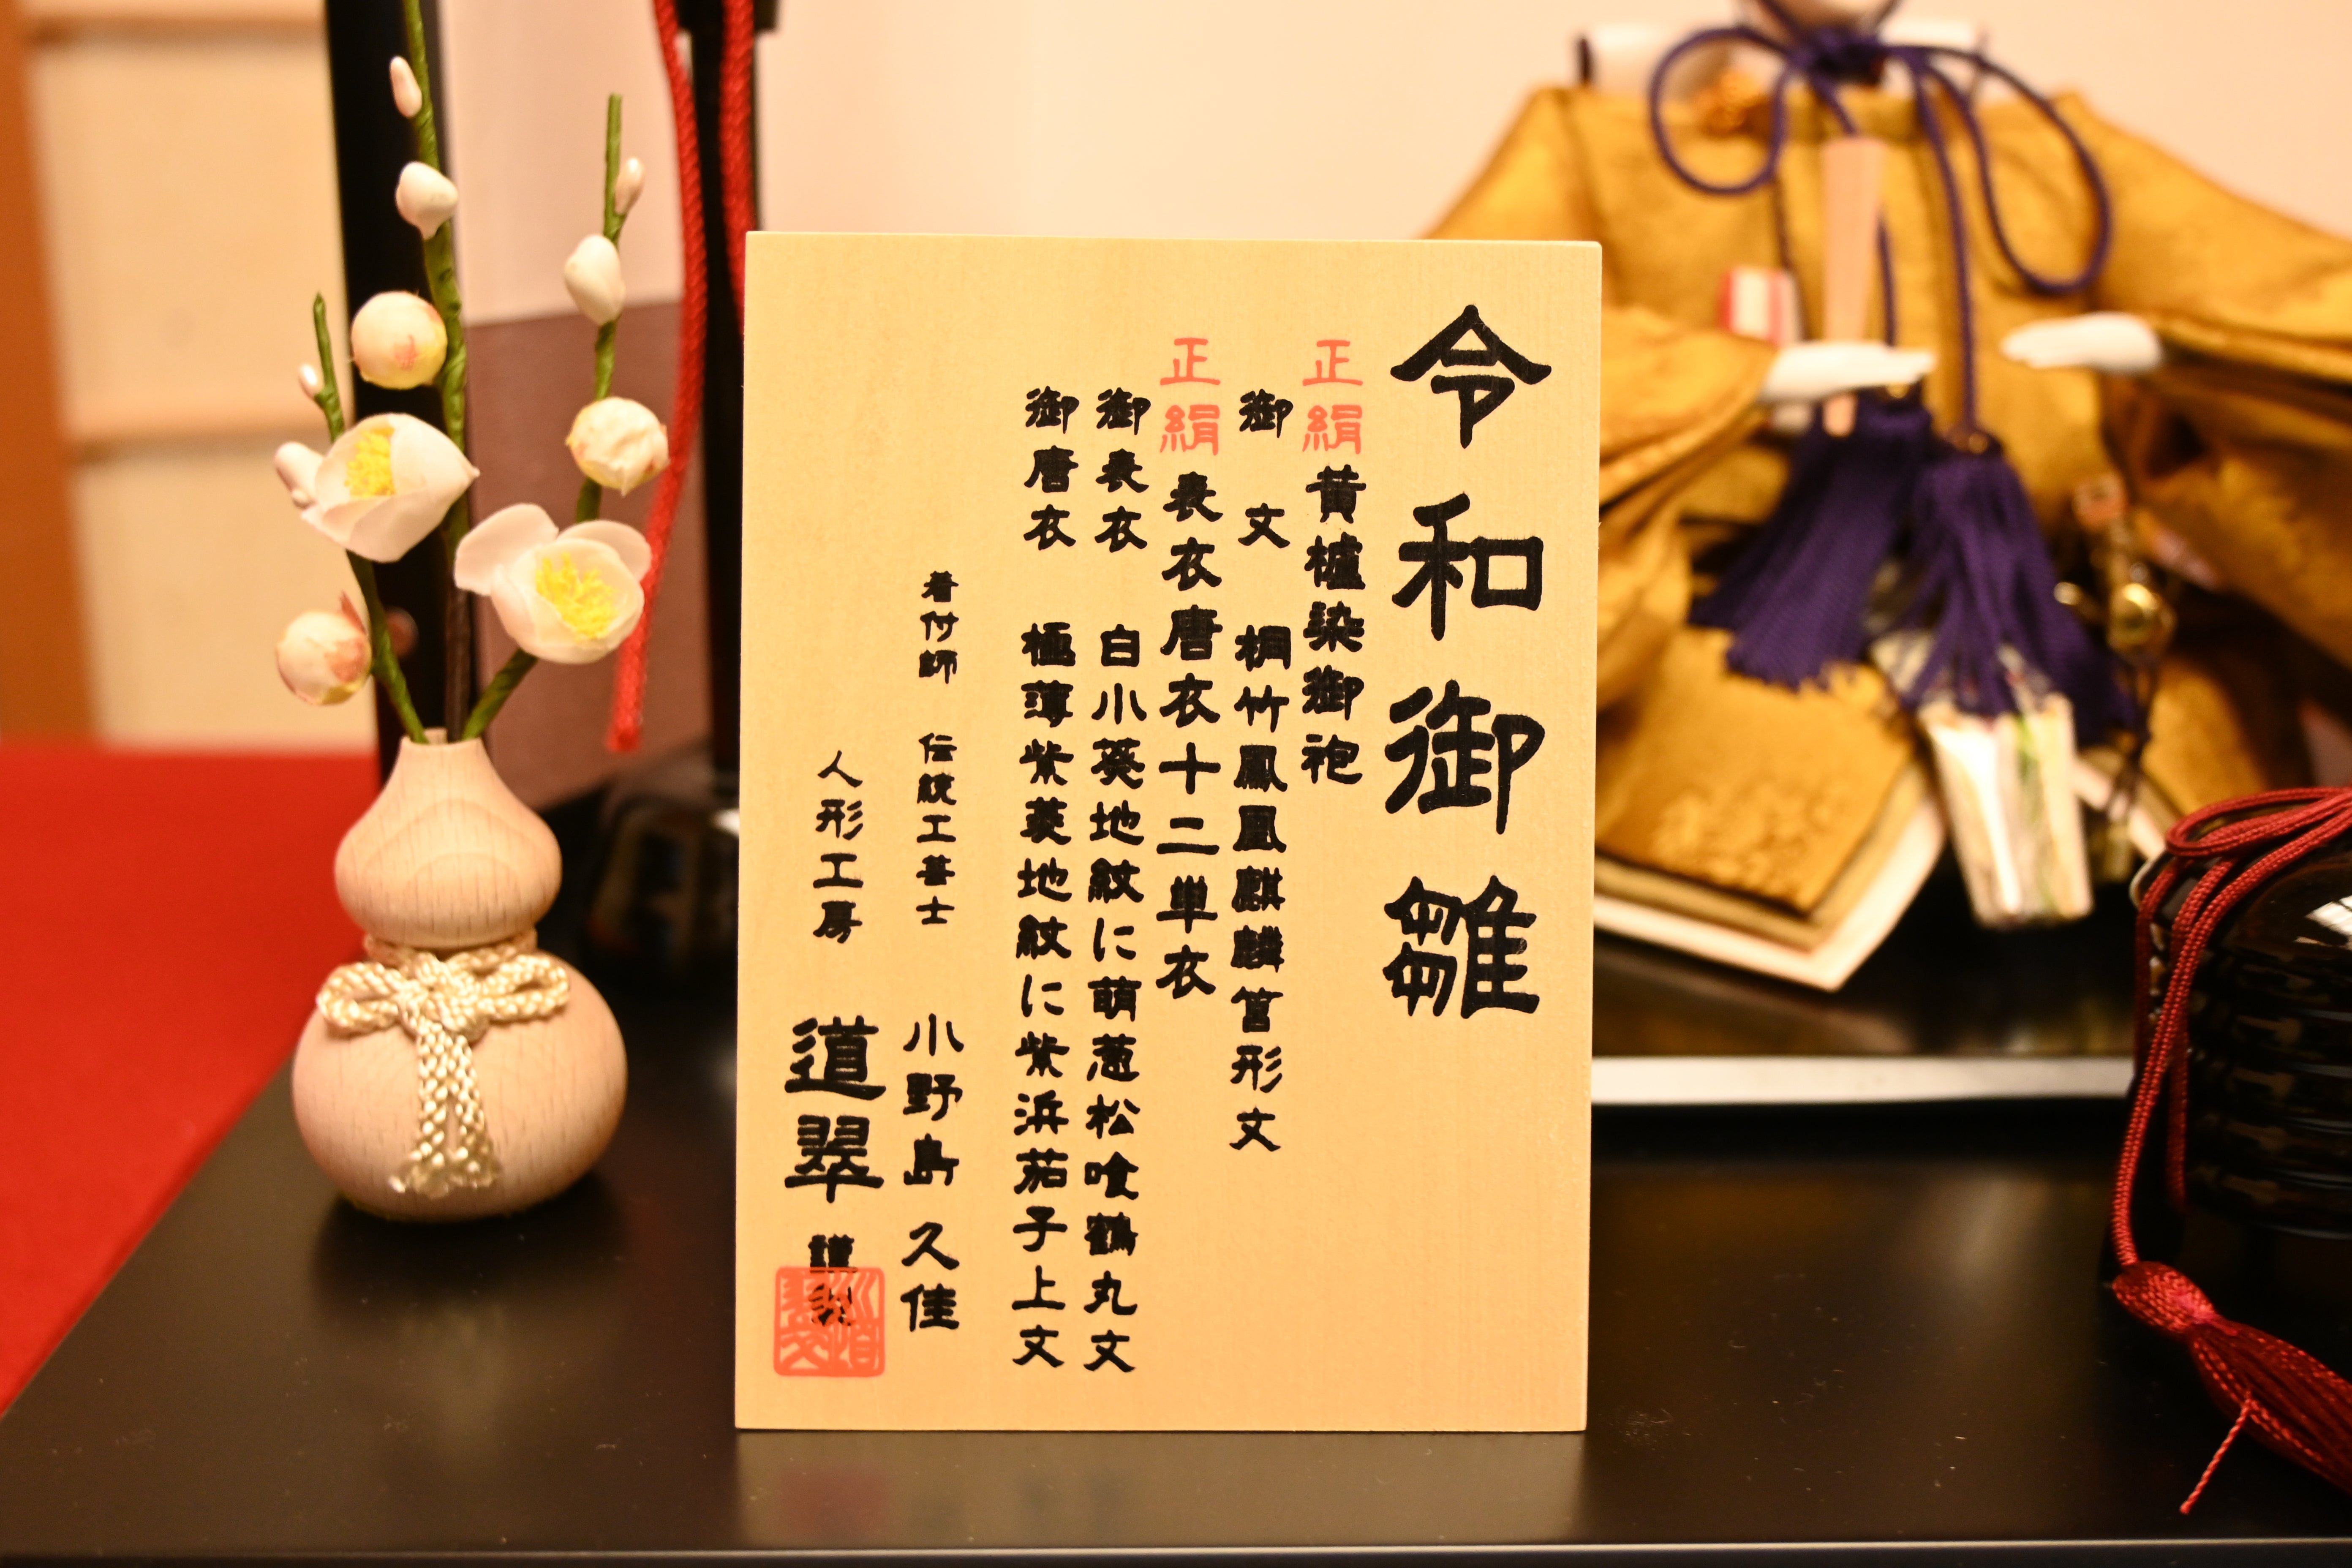 令和御雛
正絹 黄櫨染御袍
御文 桐竹鳳凰麒麟筥形文
正絹 表衣唐衣十二単衣
御表衣 白小葵地紋に萌葱松喰鶴丸文
御唐衣 極薄紫菱地紋に紫浜茄子上文
着付師 伝統工芸士 小野島久佳
人形工房 道翠 謹製